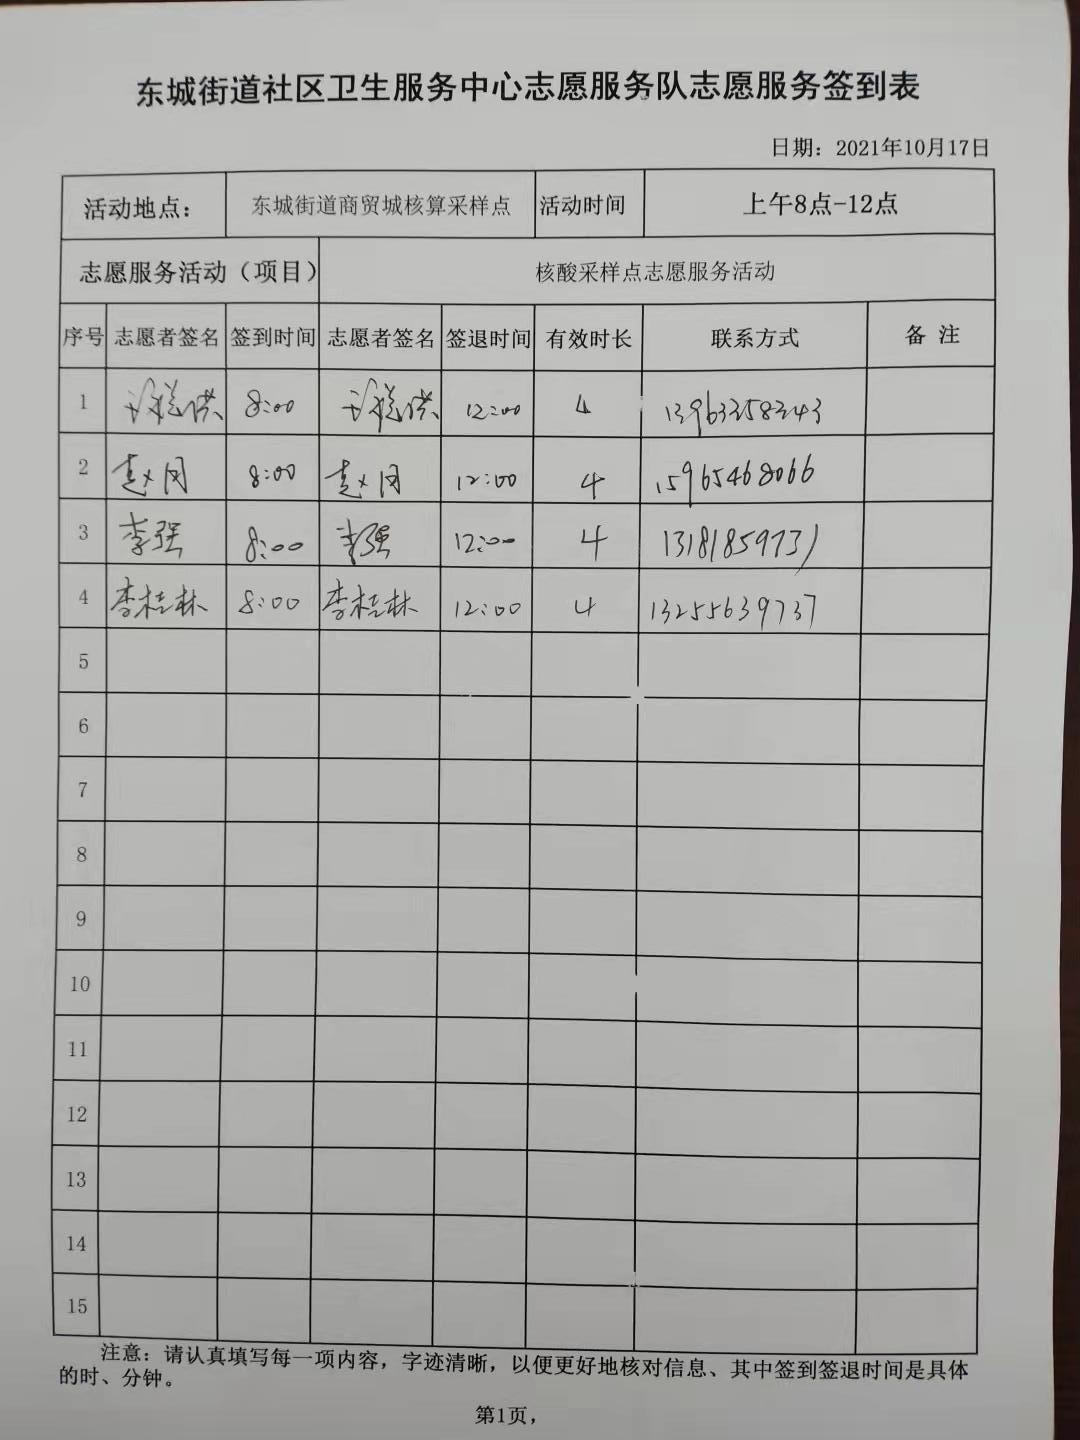 东城街道社区卫生服务中心志愿服务队志愿服务签到表
日期：2021年10月17日
活动地点： 东城街道商贸城核算采样点 活动时间 上午8点-12点
志愿服务活动（项目） 核酸采样点志愿服务活动
序号 志愿者签名 签到时间 志愿者签名 签退时间 有效时长 联系方式 备 注
1 8:00 12:00 4 13963258343
2 赵 8:00 赵 12:00 4 15965468066
3 李强 8:00 李强 12:00 4 13181859731
4 李桂林 8:00 李桂林 12:00 4 13255639737
5
6
7
8
9
10
11
12
13
14
15
注意：请认真填写每一项内容，字迹清晰，以便更好地核对信息、其中签到签退时间是具体
的时、分钟。
第1页，